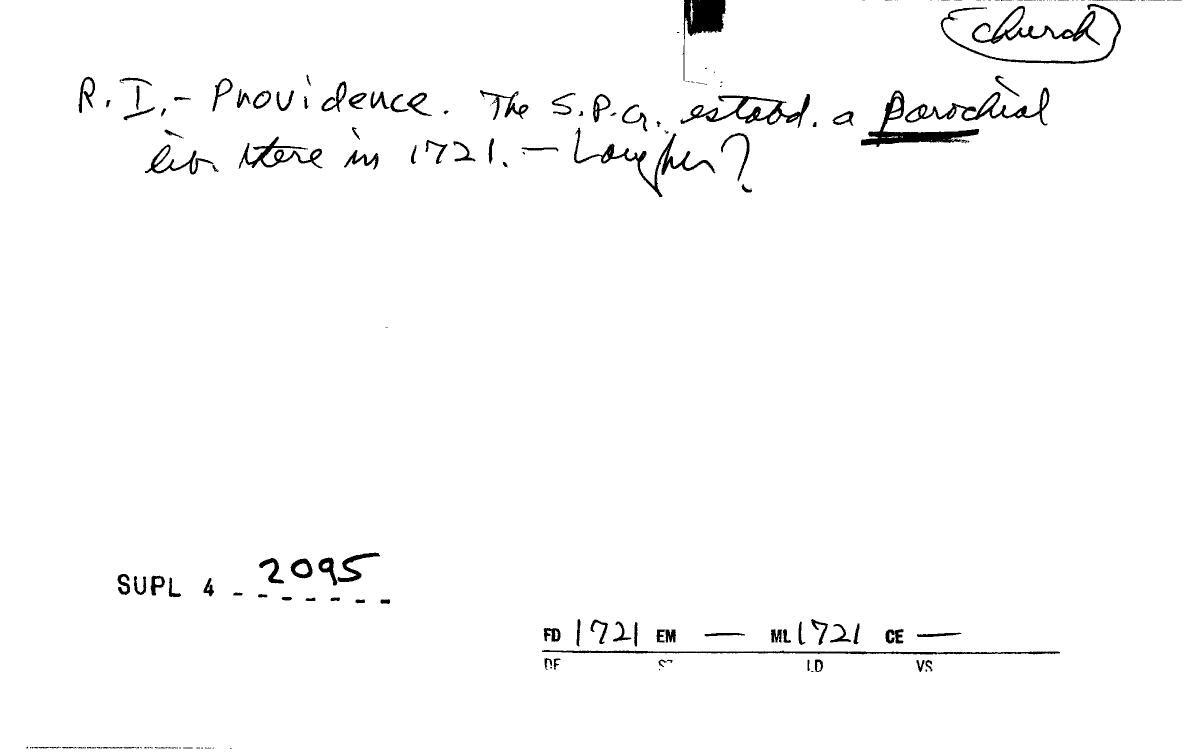 church
R. I. - Providence. The S.P.G. estabd. a parochial
lib. there in 1721. — Laugher?
SUPL 4 - 2095
FD 1721 EM — ML 1721 CE —
DF LD VS